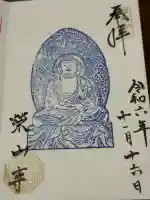 奉拝
令和六年
十一月十六日
栄山寺